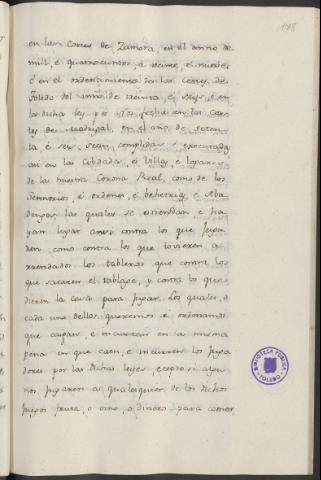 178
en las Cortes de Zamora, en el anno de
mill, é quatrocientos, é treinta, é
é en el ordenamiento de las Cortes de
Toledo del anno de treinta, é seis, é en
la dicha ley por Nos fecha en las Cor
tes de Madrigal, en el año de seten
ta é seis, sean complidas é executadas
asi en las Cibdades, é Villas é logares
de la nuestra Corona Real, como de los
Sennorios, é ordenes, é behetrias é Aba
dengos, las quales se entiendan e ha
yan lugar assi contra los que juga
ren, como contra los que tovieren a
rrendados los tableros que contra los
que sacaren el tablage, y contra los que
dieren la casa para jugar. Los quales, é
cada uno dellos queremos é ordenamos
que caygan, é incurran en la misma
pena en que caen, é incurren los juga
dores por las dichas leyes, ecepto si algu
nos jugaren a qualesquier de los dichos
juegos fruta, o vino, o dineros para comer
BIBLIOTECA PÚBLICA
TOLEDO